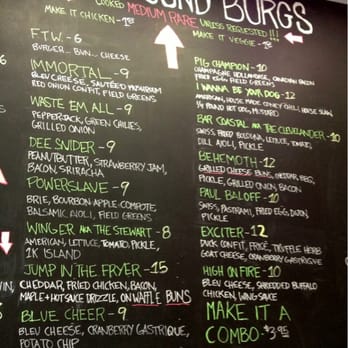 COOKED MEDIUM RARE UNLESS REQUESTED!!!
MAKE IT CHICKEN -
MAKE IT VEGGIE -
F.T.W. - 6
BURGER... BUN... CHEESE
IMMORTAL - 9
BLEU CHEESE, SAUTÉED MUSHROOM
RED ONION CONFIT, FIELD GREENS
WASTE EM ALL - 9
PEPPERJACK, GREEN CHILIES,
GRILLED ONION
DEE SNIDER - 9
PEANUTBUTTER, STRAWBERRY JAM,
BACON, SRIRACHA
POWERSLAVE - 9
BRIE, BOURBON-APPLE COMPOTE,
BALSAMIC AIOLI, FIELD GREENS
WINGER AKA THE STEWART - 8
AMERICAN, LETTUCE, TOMATO, PICKLE,
1K ISLAND
JUMP IN THE FRYER - 15
CHEDDAR, FRIED CHICKEN, BACON,
MAPLE + HOT SAUCE DRIZZLE, ON WAFFLE BUNS
BLUE CHEER - 9
BLEU CHEESE, CRANBERRY GASTRIQUE,
POTATO CHIP
PIG CHAMPION - 10
CHAMPAGNE HOLLANDAISE, CANADIAN BACON
FRIED EGG, FIELD GREENS
I WANNA BE YOUR DOG - 12
AMERICAN, HOUSE MADE CONEY CHILI, HOUSE SLAW
1/4 POUND HOT DOG, MUSTARD
BAR COASTAL AKA THE CLEVELANDER - 10
SWISS, FRIED BOLOGNA, LETTUCE, TOMATO,
DILL AIOLI, PICKLE
BEHEMOTH - 12
GRILLED CHEESE BUNS, CHEDDAR,
PICKLE, GRILLED ONION, BACON
PAUL BALOFF - 10
SWISS, PASTRAMI, FRIED EGG, DIJON,
PICKLE
EXCITER - 12
DUCK CONFIT, FRISÉE, TRUFFLE HERB
GOAT CHEESE, CRANBERRY GASTRIQUE
HIGH ON FIRE - 10
BLEU CHEESE, SHREDDED BUFFALO
CHICKEN, WING SAUCE
MAKE IT A
COMBO - $3.95